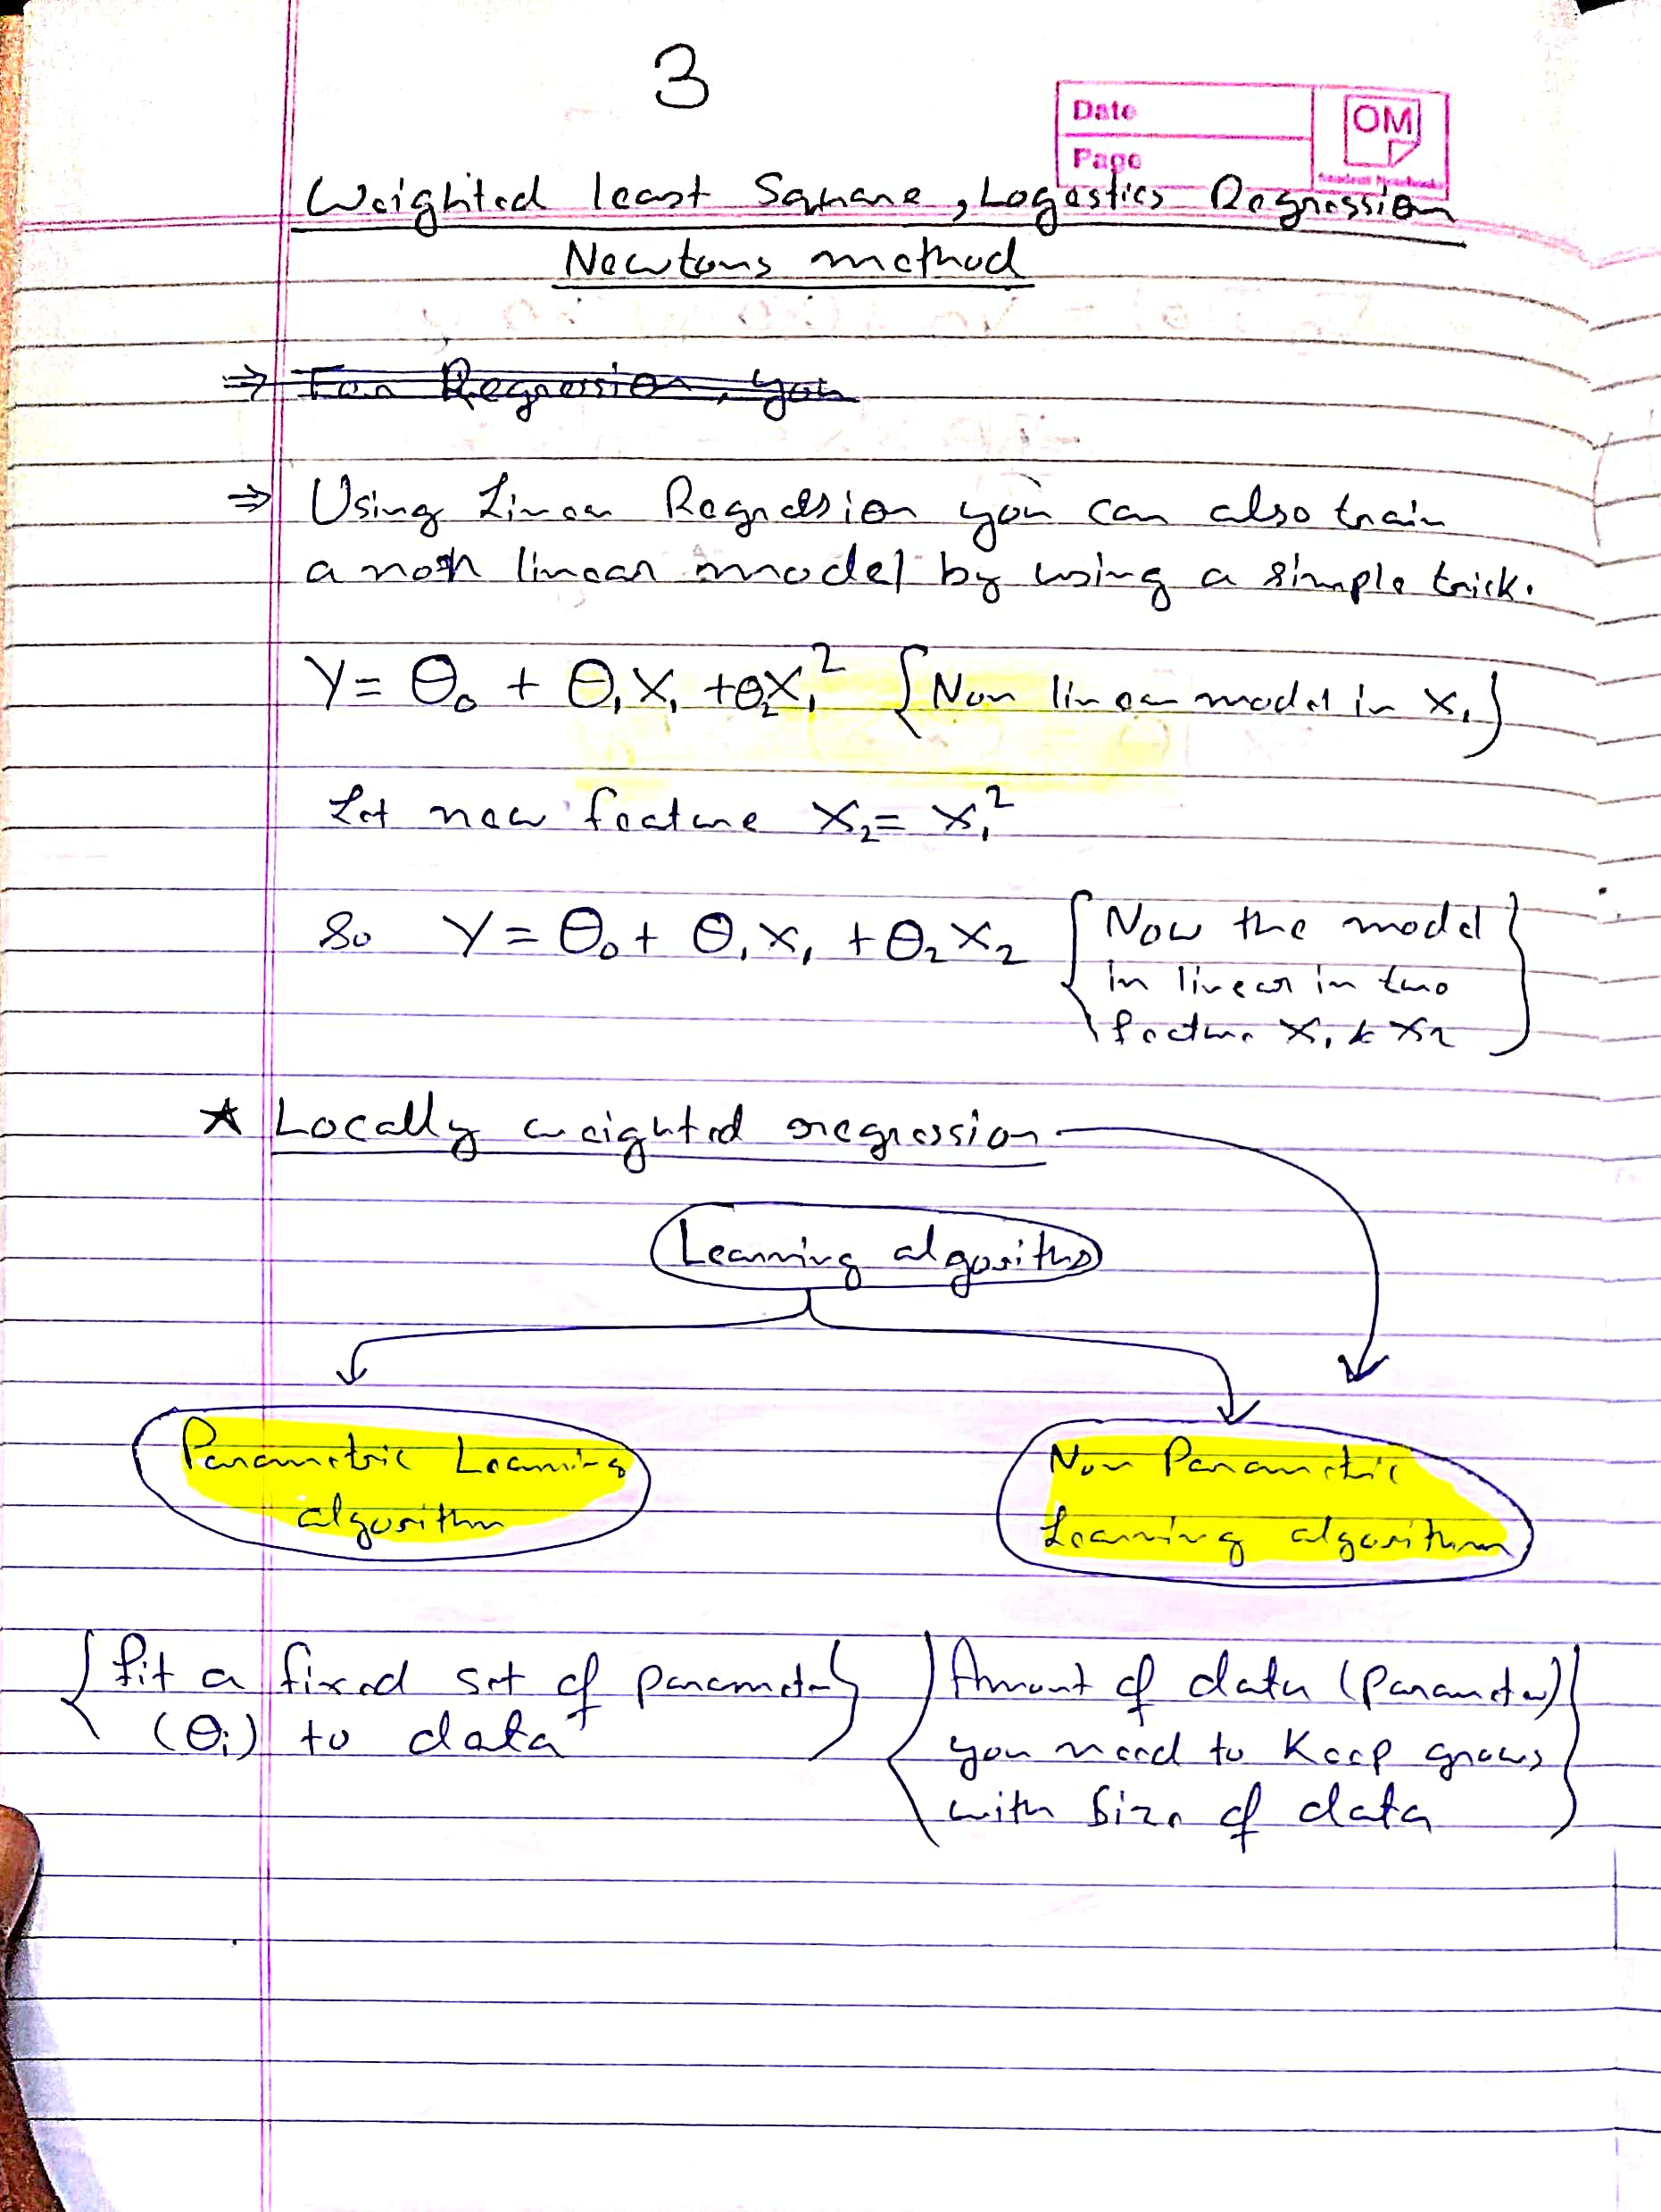 3
Date
Page
OM
Student Notebooks
Weighted least Square, Logastics Regression
Newtons method
⇒ For Regression, you
⇒ Using Linear Regression you can also train
a non linear model by using a simple trick.
Y = θ₀ + θ₁X₁ + θ₂X₁² {Non linear model in X₁}
Let new feature X₂ = X₁²
So Y = θ₀ + θ₁X₁ + θ₂X₂ {Now the model
in linear in two
feature X₁ & X₂}
★ Locally weighted regression
Learning algorithms
Parametric Learning
algorithm
Non Parametric
Learning algorithm
{fit a fixed set of parameter
(θᵢ) to data}
{Amount of data (Parameter)
you need to Keep grows
with Size of data}